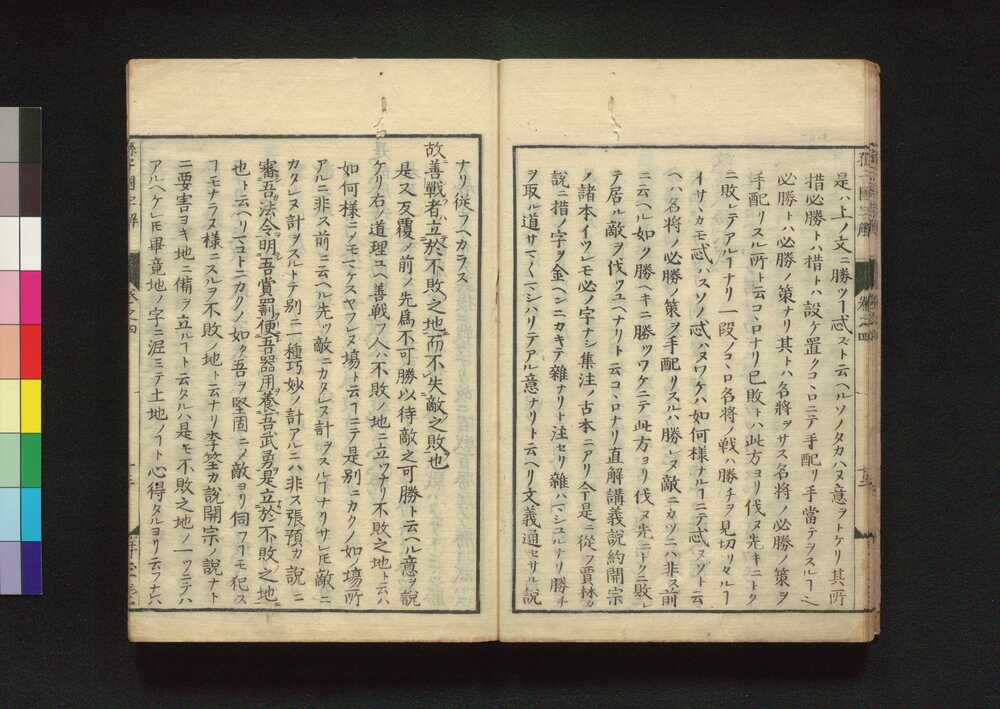 是ハ上ノ文ニ勝ツヿ忒ズト云ヘルソノタカハヌ意ヲトケリ其所
措必勝トハ措トハ設ケ置クコヽロニテ手配リ手當テヲスルヿ
必勝トハ必勝ノ策ナリ其トハ名將ヲサス名將ノ必勝ノ策ヲ
手配リスル所ト云コヽロナリ已敗トハ此方ヨリ伐ヌ先キニトク
ニ敗レテアルヿナリ一段ノコヽロ名將ノ戰ハ勝チヲ見切リタルヿ
イサヽカモ忒ハスソノ忒ハヌワケハ如何樣ナルヿニテ忒ヌソト云
ヘハ名將ノ必勝ノ策ヲ手配リスルハ勝レヌ敵ニカツニハ非ス前
ニ云ヘル如ク勝ヘキニ勝ツワケニテ此方ヨリ伐ヌ先ニトクニ敗レ
テ居ル敵ヲ伐ツユヘナリト云コヽロナリ直解講義説約開宗
ノ諸本イツレモ必ノ字ナシ集注ノ古本ニアリ今是ニ從フ賈林カ
説ニ措ノ字ヲ金ヘンニカキテ雜ナリト注セリ雜ハマシユルナリ勝チ
ヲ取ル道サマ〱マシハリテアル意ナリト云ヘリ文義通セサル説
ナリ從フヘカラス
故善戰者立於不敗之地而不失敵之敗也
是又反覆ノ前ノ先爲不可勝以待敵之可勝ト云ヘル意ヲ説
ケリ右ノ道理ユヘ善戰フ人ハ不敗ノ地ニ立ツナリ不敗之地トハ
如何樣ニメモマケスヤフレヌ塲ト云ヿニテ是別ニカクノ如塲所
アルニ非ス前ニ云ヘル先ツ敵ニカタレヌ計ヲスルヿナリサレ𪜈敵ニ
カタレヌ計ヲスルトテ別ニ一種巧妙ノ計アルニハ非ス張預カ説ニ
審吾法令明吾賞罰便吾器用養吾武勇是立於不敗之地
也ト云ヘリマコトニカクノ如ク吾ヲ堅固ニメ敵ヨリ伺フヿモ犯ス
ヿモナラヌ樣ニスルヲ不敗ノ地ト云ナリ李筌カ説開宗ノ説ナト
ニ要害ヨキ地ニ備ヲ立ルヿト云タルハ是モ不敗之地ノ一ツニテハ
アルヘケレ𪜈畢竟地ノ字ニ泥ミテ土地ノヿト心得タルヨリ云フナハ
孫子國字解
卷之四